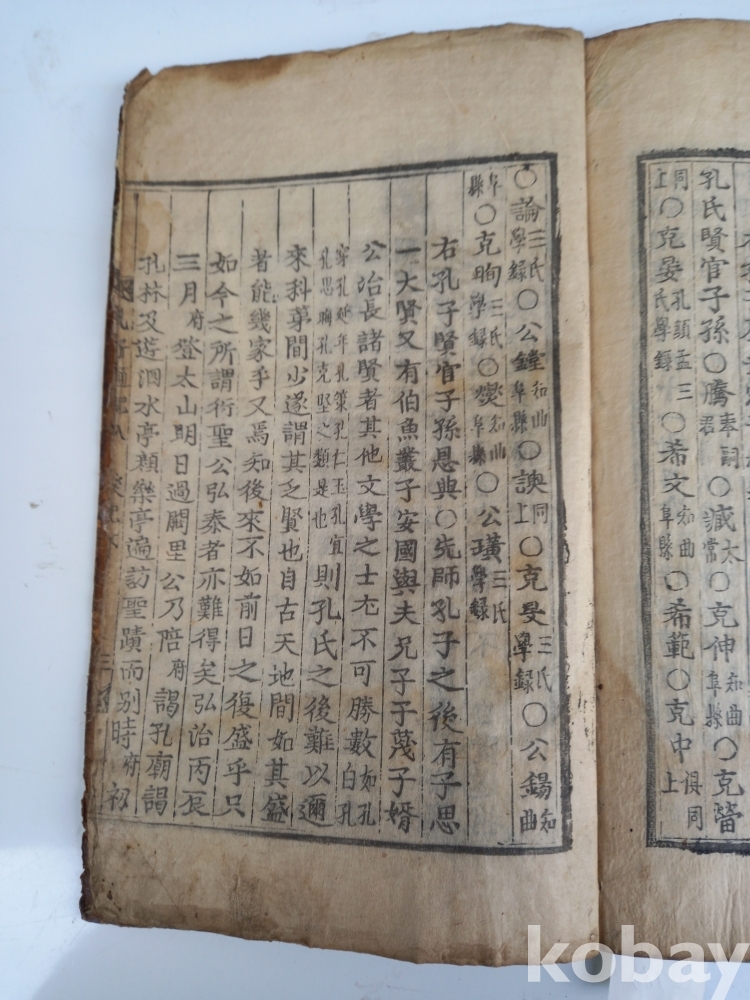 孔氏賢官子孫○騰奉詞君○臧太常○克伸知曲阜縣○克嘗
同上○克晏孔顔孟三氏學録○希文知曲阜縣○希範○克中俱同上
○論三氏學録○公鏜知曲阜縣○諛同上○克旻三氏學録○公鍚知曲
阜縣○克晌三氏學録○知曲阜縣○公璜三氏學録
右孔子賢官子孫恩典○先師孔子之後有子思
一大賢又有伯魚叢子安國與夫兄子子蔑子婿
公冶長諸賢者其他文學之士尤不可勝數如孔白孔
穿孔延年孔孔仁玉孔宜孔思晦孔克堅之類是也則孔氏之後難以邇
來科第間少遂謂其乏賢也自古天地間如其盛
者能幾家乎又焉知後來不如前日之復盛乎只
如今之所謂衍聖公弘泰者亦難得矣弘治丙辰
三月府登太山明日過闕里公乃陪府謁孔廟謁
孔林及遊泗水亭顔樂亭遍訪聖蹟而别時府初
三
kobay